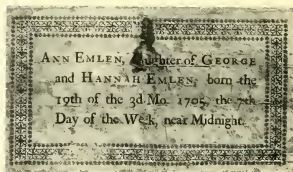 ANN EMLEN, Daughter of GEORGE
and HANNAH EMLEN, born the
19th of the 3d Mo. 1705, the 7th
Day of the Week, near Midnight.